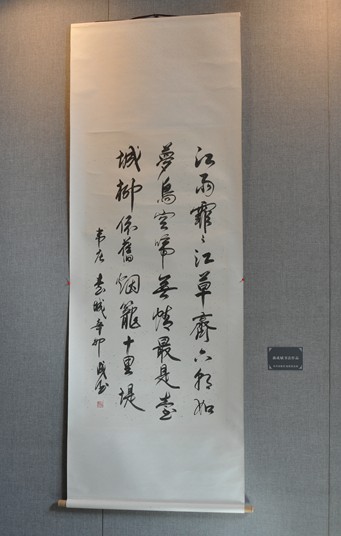 江雨霏々江草齊六朝如
夢鳥空啼無情最是臺
城柳依舊烟籠十里堤
韋庄 臺城 辛卯